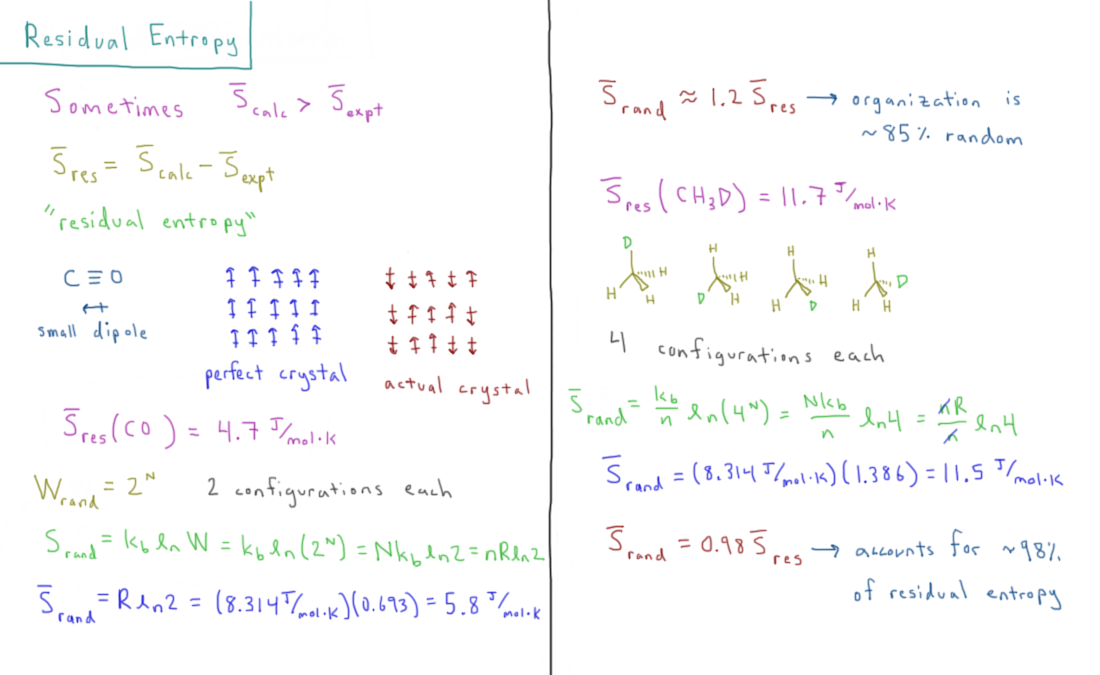 Residual Entropy
Sometimes S̄calc > S̄expt
S̄res = S̄calc - S̄expt
"residual entropy"
C≡O
↔
small dipole
perfect crystal
actual crystal
S̄res(CO) = 4.7 J/mol·K
Wrand = 2^N 2 configurations each
Srand = kb ln W = kb ln(2^N) = Nkb ln2 = nRln2
S̄rand = R ln2 = (8.314 J/mol·K)(0.693) = 5.8 J/mol·K
S̄rand ≈ 1.2 S̄res → organization is
~85% random
S̄res(CH₃D) = 11.7 J/mol·K
D H H H
H H H H
H H D H H D
H D H H
4 configurations each
S̄rand = kb/n ln(4^N) = Nkb/n ln4 = nR/n ln4
S̄rand = (8.314 J/mol·K)(1.386) = 11.5 J/mol·K
S̄rand = 0.98 S̄res → accounts for ~98%
of residual entropy